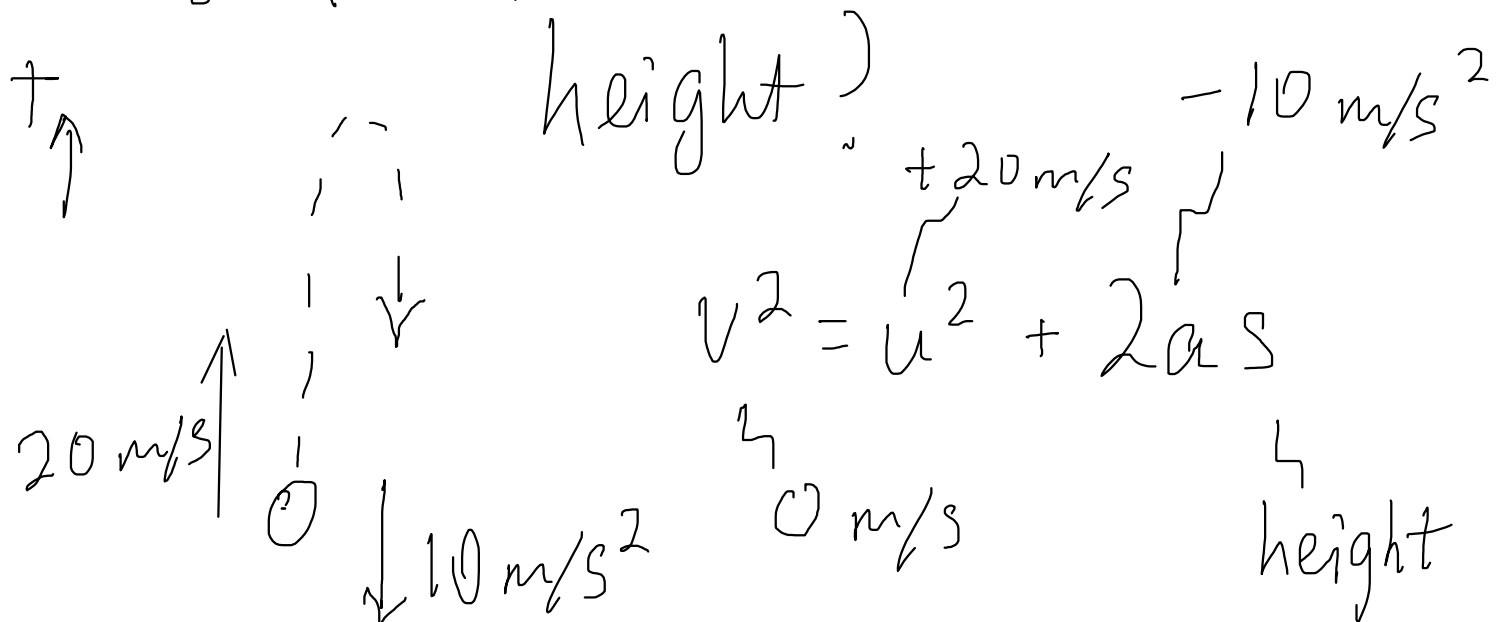 +
height?
-10 m/s²
+20 m/s
v² = u² + 2as
20 m/s
0 m/s
10 m/s²
height